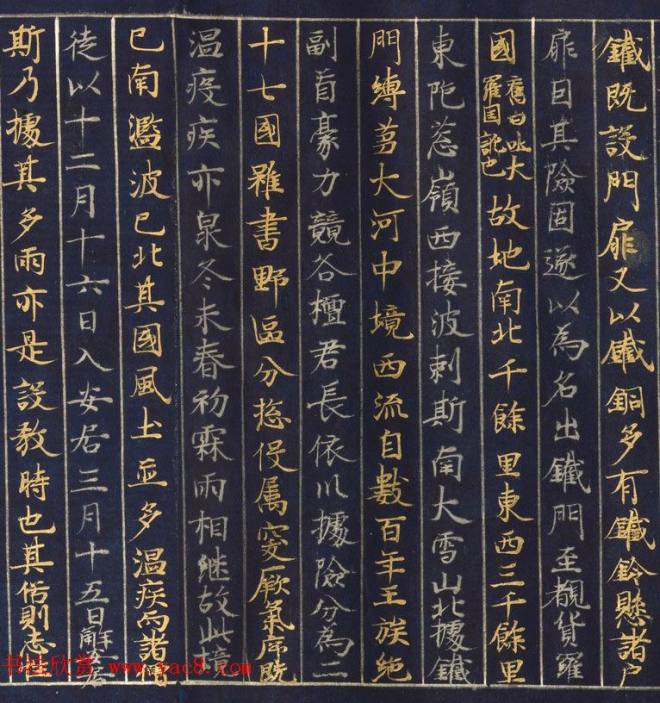 鐵既設門扉又以鐵銅多有鐵鈴懸諸戶
扉因其險固遂以為名出鐵門至覩貨羅
國舊曰吐火羅國訛也故地南北千餘里東西三千餘里
東阨葱嶺西接波剌斯南大雪山北據鐵
門縛芻大河中境西流自數百年王族絕
嗣酋豪力競各擅君長依川據險分為二
十七國雖畫野區分揔役属突厥氣序既
温疫疾亦衆冬末春初霖雨相継故此境
已南濫波已北其國風土並多温疾而諸僧
徒以十二月十六日入安居三月十五日解安居
斯乃據其多雨亦是設教時也其俗則志
书法欣赏 www.yac8.com